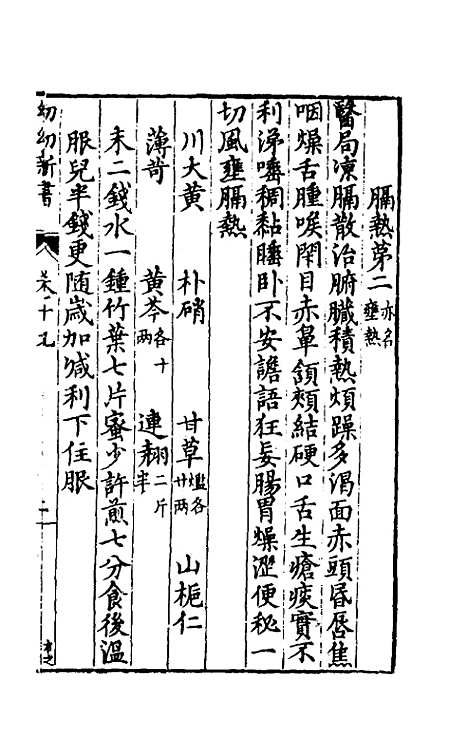 膈熱第二亦名壅熱
醫局凍膈散治腑臟積熱煩躁多渴面赤頭昏唇焦
咽燥舌腫喉閉目赤鼻頷頰結硬口舌生瘡痰實不
利涕唾稠黏睡卧不安譫語狂妄腸胃燥澀便秘一
切風壅膈熱
川大黄 朴硝 甘草爁各廿两 山梔仁
薄苛 黄芩各十两 連翹二斤半
末二錢水一鍾竹葉七片蜜少許煎七分食後温
服兒半錢更隨歲加減利下住服
幼幼新書 卷十九 二